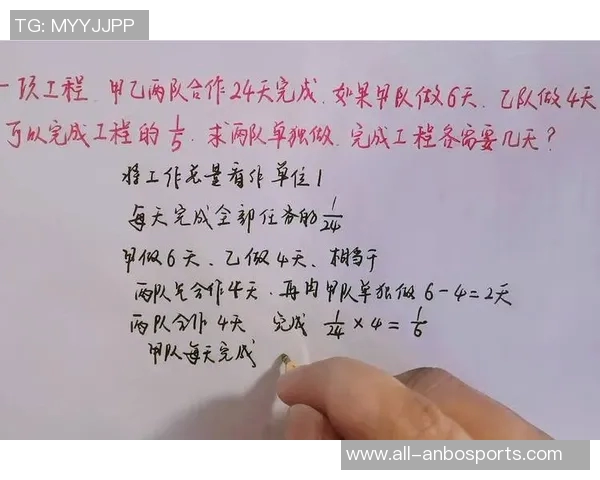 TG: MYYJJPP
一项工程.甲乙两队合作24天完成.如果甲队做6天.乙队做4天
可以完成工程的1/5.求两队单独做.完成工程各需要几天?
将工作总量看作单位1
每天完成全部任务的1/24
甲做6天、乙做4天、相当于
两队先合作4天.再由甲队单独做6-4=2天
两队合作4天 完成 1/24×4=1/6
甲队每天完成
www.all-anbosports.com